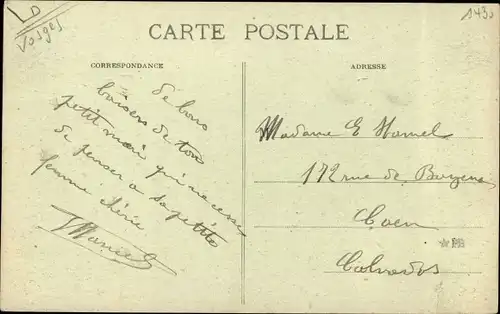 LD
Vosges
CARTE POSTALE
CORRESPONDANCE
ADRESSE
de bons
baisers de ton
petit mari qui ne cesse
de penser a sa petite
femme chérie
Marcel
Madame E Hamel
172 rue de
Caen
Calvados